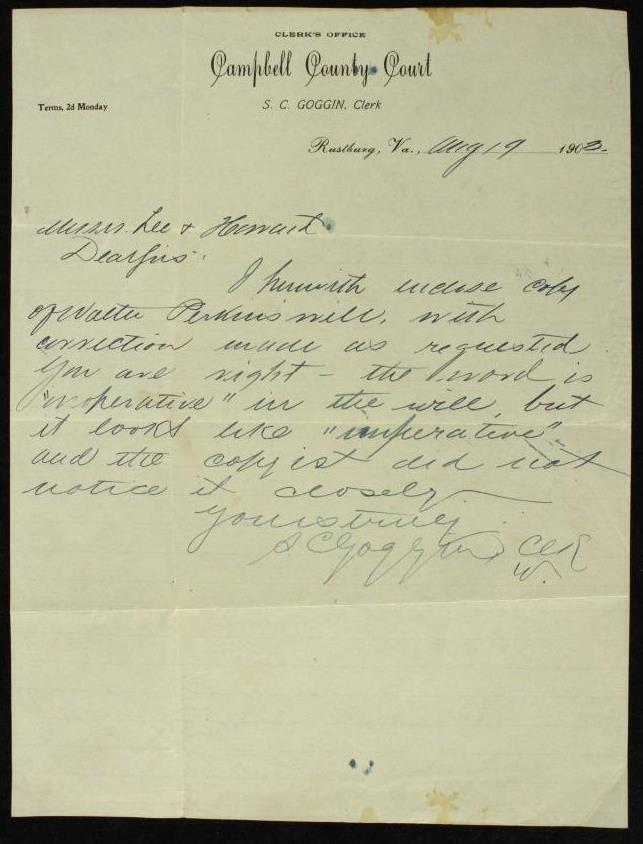 CLERK'S OFFICE
Campbell County Court
Terms, 2d Monday
S. C. GOGGIN, Clerk
Rustburg, Va., Aug 19 1903.
Messrs. Lee & Howard
Dear Sirs:
I herewith enclose copy
of Walter Perkins will, with
correction made as requested.
You are right - the word is
"inoperative" in the will, but
it looks like "imperative"
and the copyist did not
notice it closely
Yours truly
S C Goggin Clk